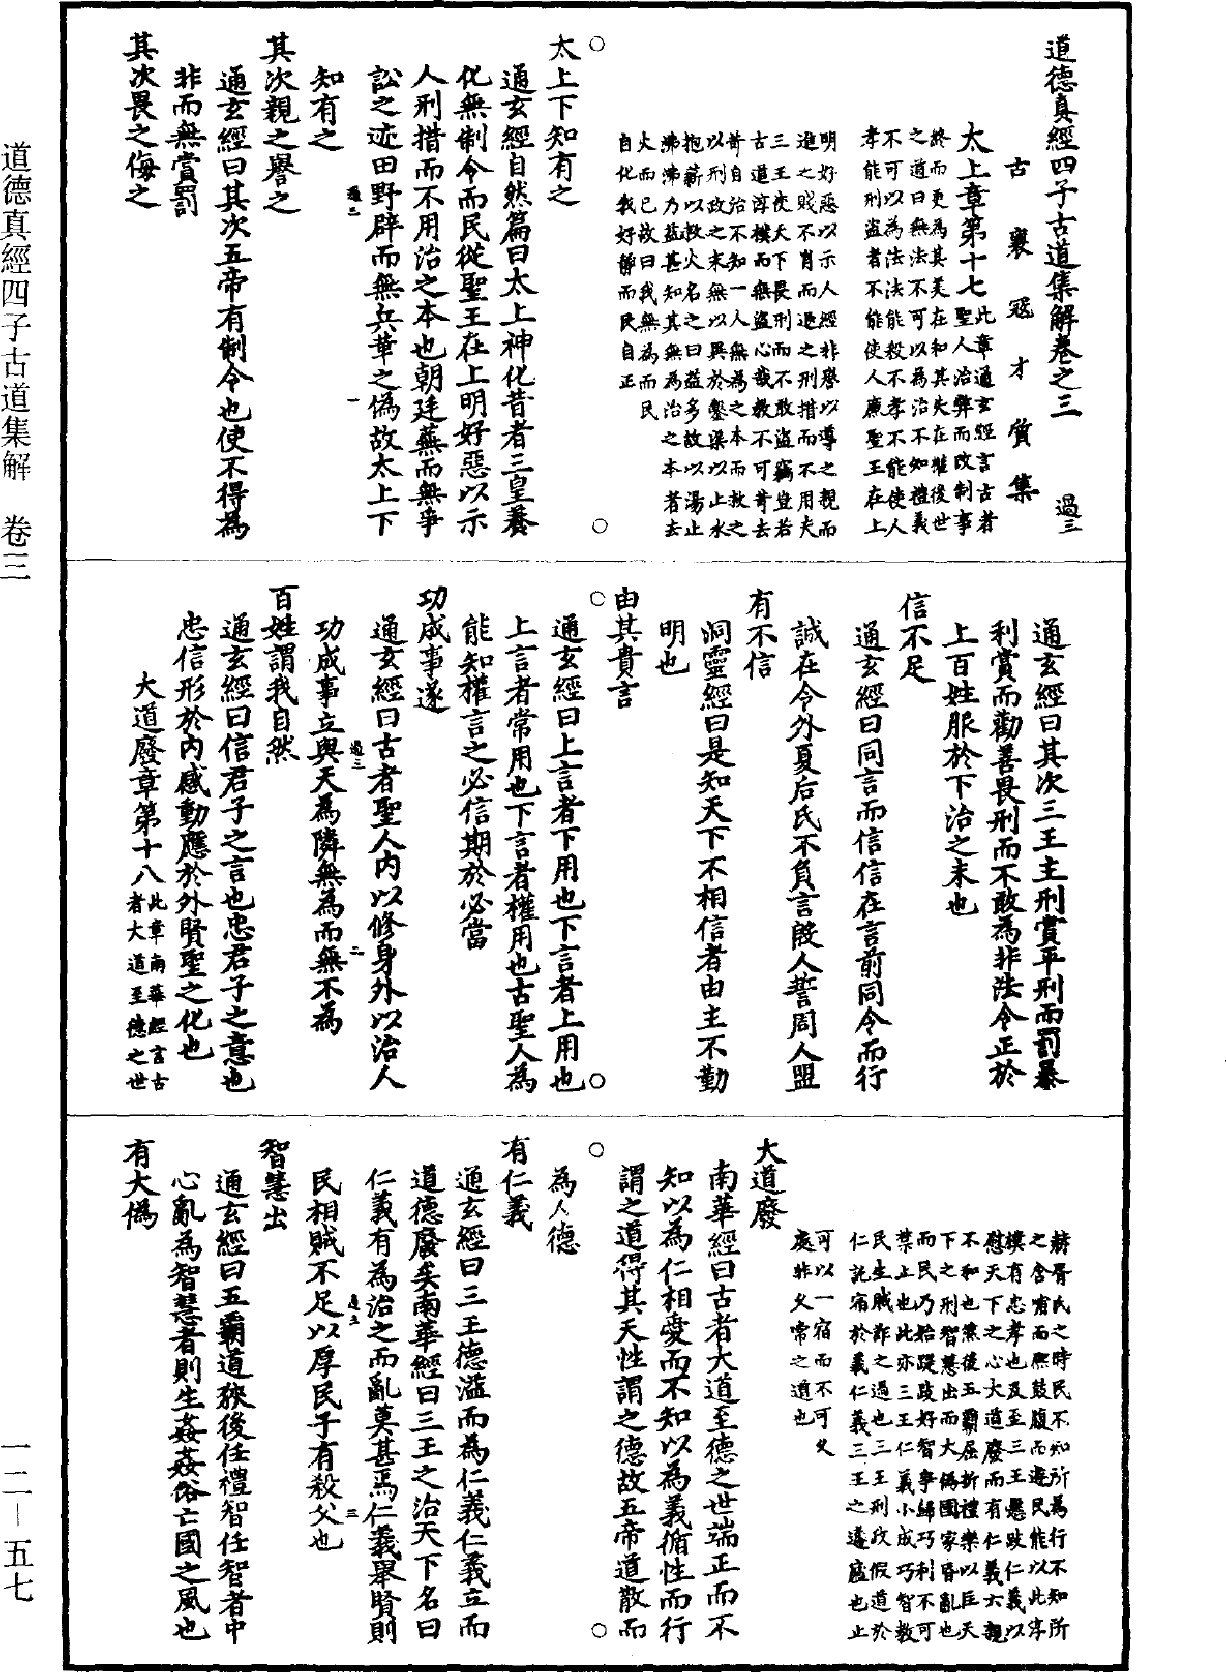 道德真經四子古道集解卷之三　過三
古襄寇才質集
太上章第十七
此章通玄經言古者
聖人治弊而改制事
終而更為其美在和其失在權後世
之道曰無法不可以為治不知禮義
不可以為法法能殺不孝不能使人
孝能刑盜者不能使人廉聖王在上
明好惡以示人經非譽以導之親而
進之賤不肖而退之刑措而不用夫
三王使天下畏刑而不敢盜竊豈若
古道淳樸而無盜心哉教不可苛去
苛自治不知一人無為之本而救之
以刑政之末無以異於鑿渠以止水
抱薪以救火名之曰益多故以湯止
沸沸乃益甚知其無為治之本者去
火而已故曰我無為而民
自化我好靜而民自正
太上下知有之
通玄經自然篇曰太上神化昔者三皇養
化無制令而民從聖王在上明好惡以示
人刑措而不用治之本也朝廷蕪而無爭
訟之迹田野辟而無兵革之偽故太上下
知有之
過三　一
其次親之譽之
通玄經曰其次五帝有制令也使不得為
非而無賞罰
其次畏之侮之
通玄經曰其次三王主刑賞平刑而罰暴
利賞而勸善畏刑而不敢為非法令正於
上百姓服於下治之末也
信不足
通玄經曰同言而信信在言前同令而行
誠在令外夏后氏不負言殷人誓周人盟
有不信
洞靈經曰是知天下不相信者由主不勤
明也
由其貴言
通玄經曰上言者下用也下言者上用也
上言者常用也下言者權用也古聖人為
能知權言之必信期於必當
功成事遂
通玄經曰古者聖人內以修身外以治人
功成事立與天為隣無為而無不為
過三　二
百姓謂我自然
通玄經曰信君子之言也忠君子之意也
忠信形於內感動應於外賢聖之化也
大道廢章第十八
此章南華經言古
者大道至德之世
赫胥氏之時民不知所為行不知所
之含哺而熙鼓腹而遊民能以此淳
樸有忠孝也及至三王懸跂仁義以
慰天下之心大道廢而有仁義六親
不和也然後五霸屈折禮樂以匡天
下之刑智慧出而大偽國家昏亂也
而民乃始踶跂好智爭歸巧利不可
禁上也此亦三王仁義小成巧智教
民生賊詐之過也三王刑政假道於
仁託宿於義仁義三王之遽廬也止
可以一宿而不可久
處非久常之道也
大道廢
南華經曰古者大道至德之世端正而不
知以為仁相愛而不知以為義循性而行
謂之道得其天性謂之德故五帝道散而
為人德
有仁義
通玄經曰三王德溢而為仁義仁義立而
道德廢矣南華經曰三王之治天下名曰
仁義有為治之而亂莫甚焉仁義舉賢則
民相賊不足以厚民子有殺父也
過三　三
智慧出
通玄經曰五霸道狹後任禮智任智者中
心亂為智慧者則生姦姦俗亡國之風也
有大偽
道德真經四子古道集解　卷三
一二—五七